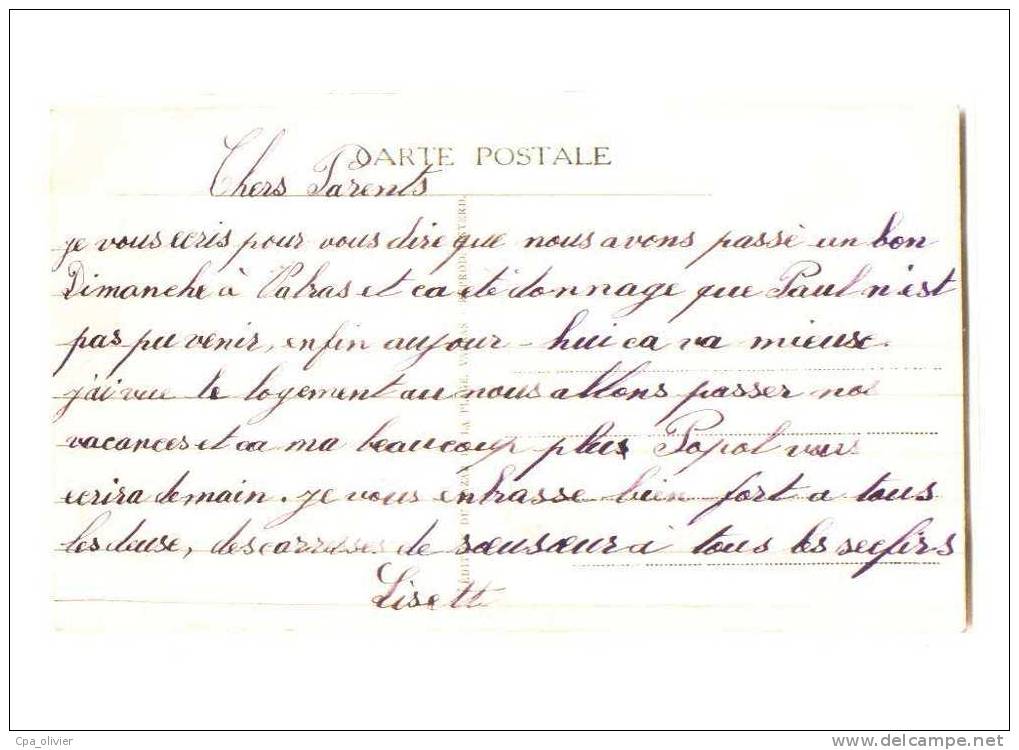 CARTE POSTALE
Chers Parents
je vous ecris pour vous dire que nous avons passé un bon
Dimanche à Valras et ca été donnage que Paul n'est
pas pu venir, enfin aujour-hui ca va mieuse.
j'ai vue le logement au nous allons passer nos
vacances et ca ma beaucoup plus Popol vous
ecrira demain. je vous enbrasse bien fort a tous
les deuse, des carresses de sœusœur à tous les
Lisett
Cpa_olivier
delcampe.net